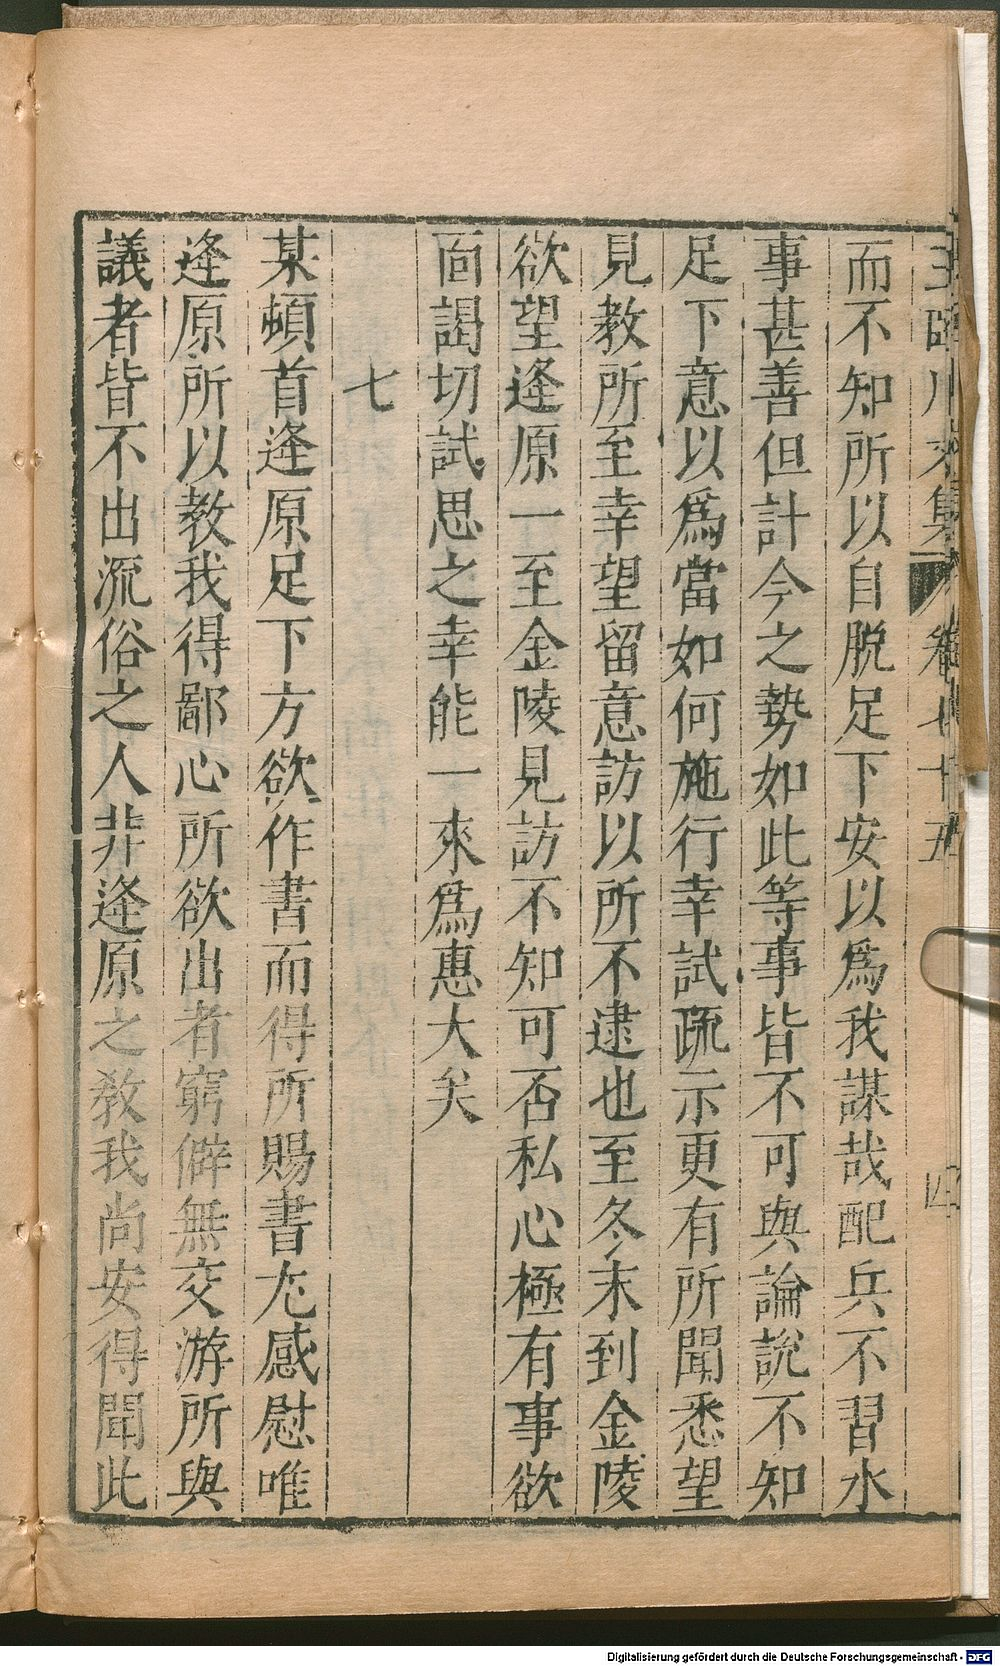 王臨川文集 卷七十五 四
而不知所以自脱足下安以爲我謀哉配兵不習水
事甚善但計今之勢如此等事皆不可與論說不知
足下意以爲當如何施行幸試疏示更有所聞悉望
見教所至幸望留意訪以所不逮也至冬末到金陵
欲望逢原一至金陵見訪不知可否私心極有事欲
面謁切試思之幸能一來爲惠大矣
七
某頓首逢原足下方欲作書而得所賜書尤感慰唯
逢原所以教我得鄙心所欲出者窮僻無交游所與
議者皆不出流俗之人非逢原之教我尚安得聞此
Digitalisierung gefördert durch die Deutsche Forschungsgemeinschaft - DFG